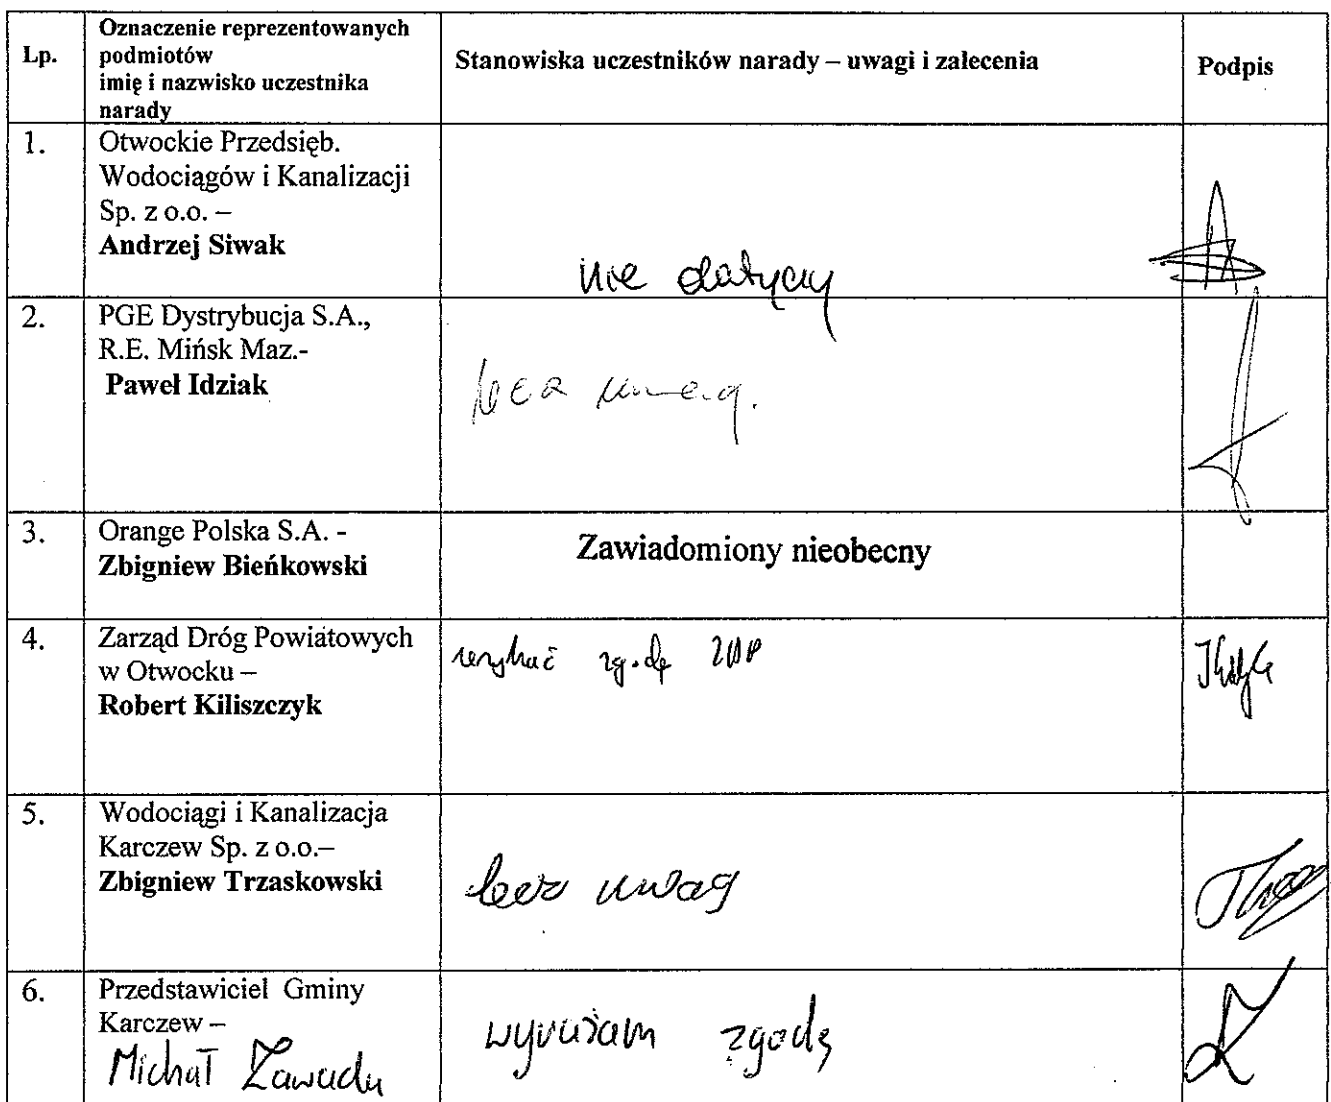 Lp.
Oznaczenie reprezentowanych
podmiotów
imię i nazwisko uczestnika
narady
Stanowiska uczestników narady – uwagi i zalecenia
Podpis
1.
Otwockie Przedsięb.
Wodociągów i Kanalizacji
Sp. z o.o. –
Andrzej Siwak
nie dotyczy
2.
PGE Dystrybucja S.A.,
R.E. Mińsk Maz.-
Paweł Idziak
bez uwag.
3.
Orange Polska S.A. -
Zbigniew Bieńkowski
Zawiadomiony nieobecny
4.
Zarząd Dróg Powiatowych
w Otwocku –
Robert Kiliszczyk
uzyskać zgodę ZDP
5.
Wodociągi i Kanalizacja
Karczew Sp. z o.o.–
Zbigniew Trzaskowski
bez uwag
6.
Przedstawiciel Gminy
Karczew –
Michał Zawada
wyrażam zgodę